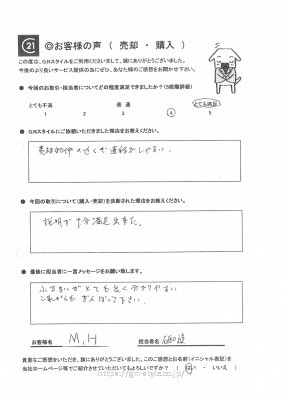 21 ◎お客様の声 ( 売却 ・ 購入 )
この度は、G.Nスタイルをご利用くださいまして、誠にありがとうございました。
今後のより良いサービス提供の為にぜひ、あなた様のご感想をお聞かせ下さい。
● 今回のお取引・担当者についてどの程度満足できましたか？(5段階評価)
とても不満 普 通 とても満足
1 2 3 4 5
● G.Nスタイルにご依頼いただきました理由をお教えください。
売却物件の近くで連絡がしやすい。
● 今回の取引について(購入・売却)を決断された理由をお教えください。
説明が十分満足出来た。
● 最後に担当者に一言メッセージをお願い致します。
とても良く分かりやすい
これからもがんばって下さい。
お客様名 M,H 担当者名
貴重なご感想をいただき、誠にありがとうございました。このご感想とお名前(イニシャル表記)を
当社ホームページ等でご紹介させていただいてもよろしいですか？ ( はい ・ いいえ )